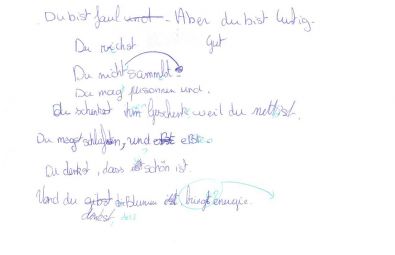 Du bist faul und - Aber du bist lustig.
Du riechst Gut
Du nicht sammelst.
Du mag personnen und.
Du schenkst ihm Geschenk weil du nett ist.
Du magst schlafen, und
Du denkst, dass schön ist.
Und du gibst Blumen ist bringt energie.
denkst, dass